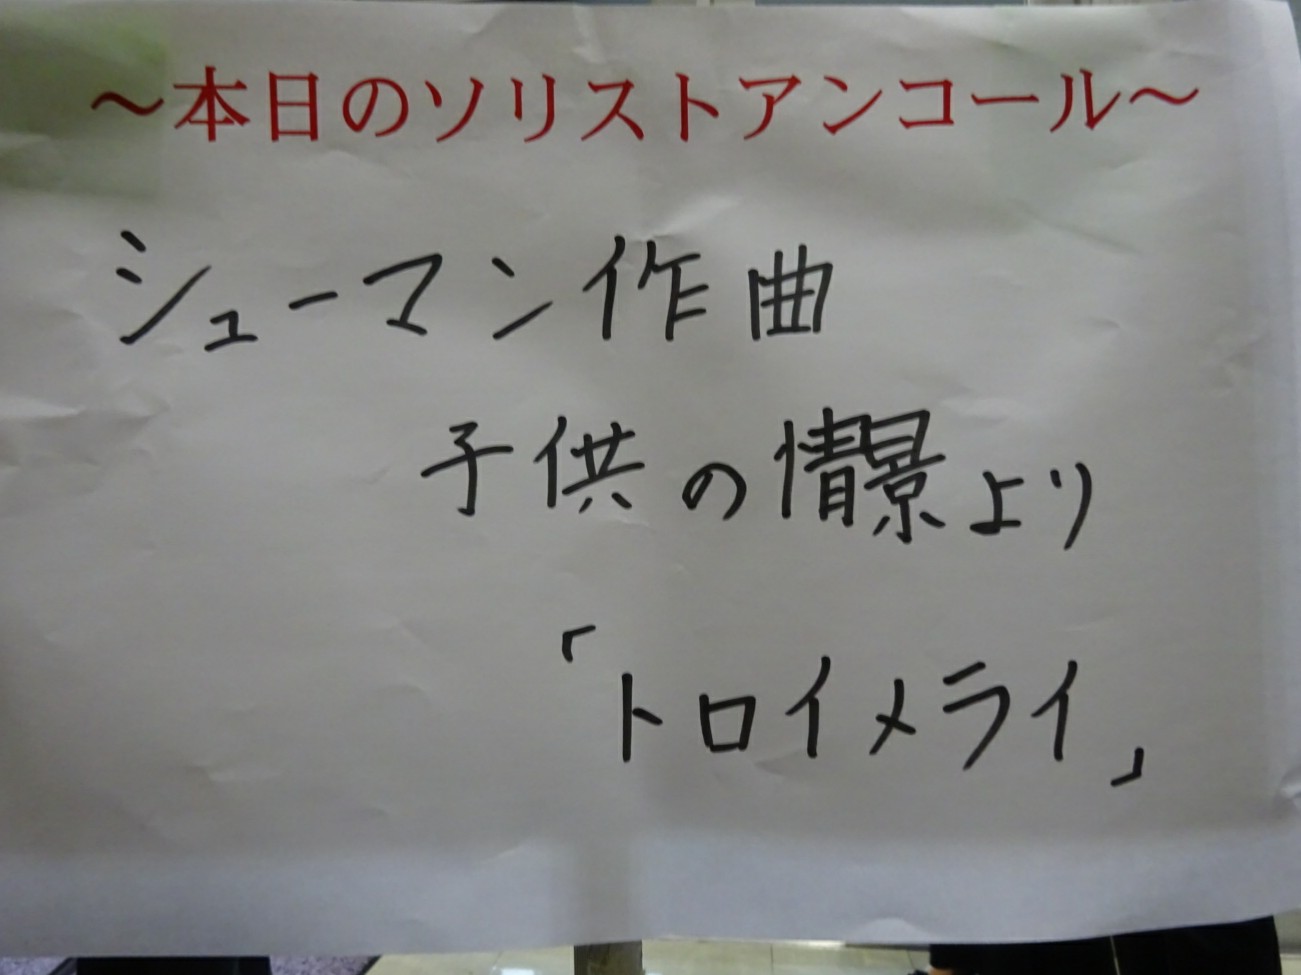 ～本日のソリストアンコール～
シューマン作曲
子供の情景より
「トロイメライ」